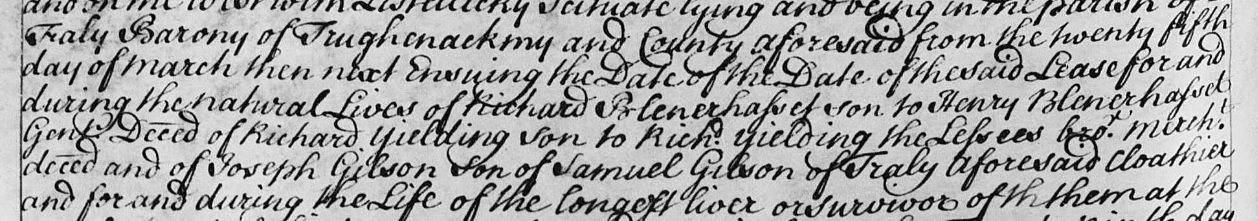 and on the West with Listellicky Scituate lying and being in the parish of
Traly Barony of Trughenackmy and County aforesaid from the twenty fifth
day of March then next Ensuing the Date of the Date of the said Lease for and
during the natural Lives of Richard Blenerhasset son to Henry Blenerhasset
Gent. Deced of Richard Yielding son to Richd. Yielding the Lessees bror. Mercht.
deced and of Joseph Gilson Son of Samuel Gilson of Traly aforesaid Cloathier
and for and during the Life of the longest liver or survivor of th them at the
day